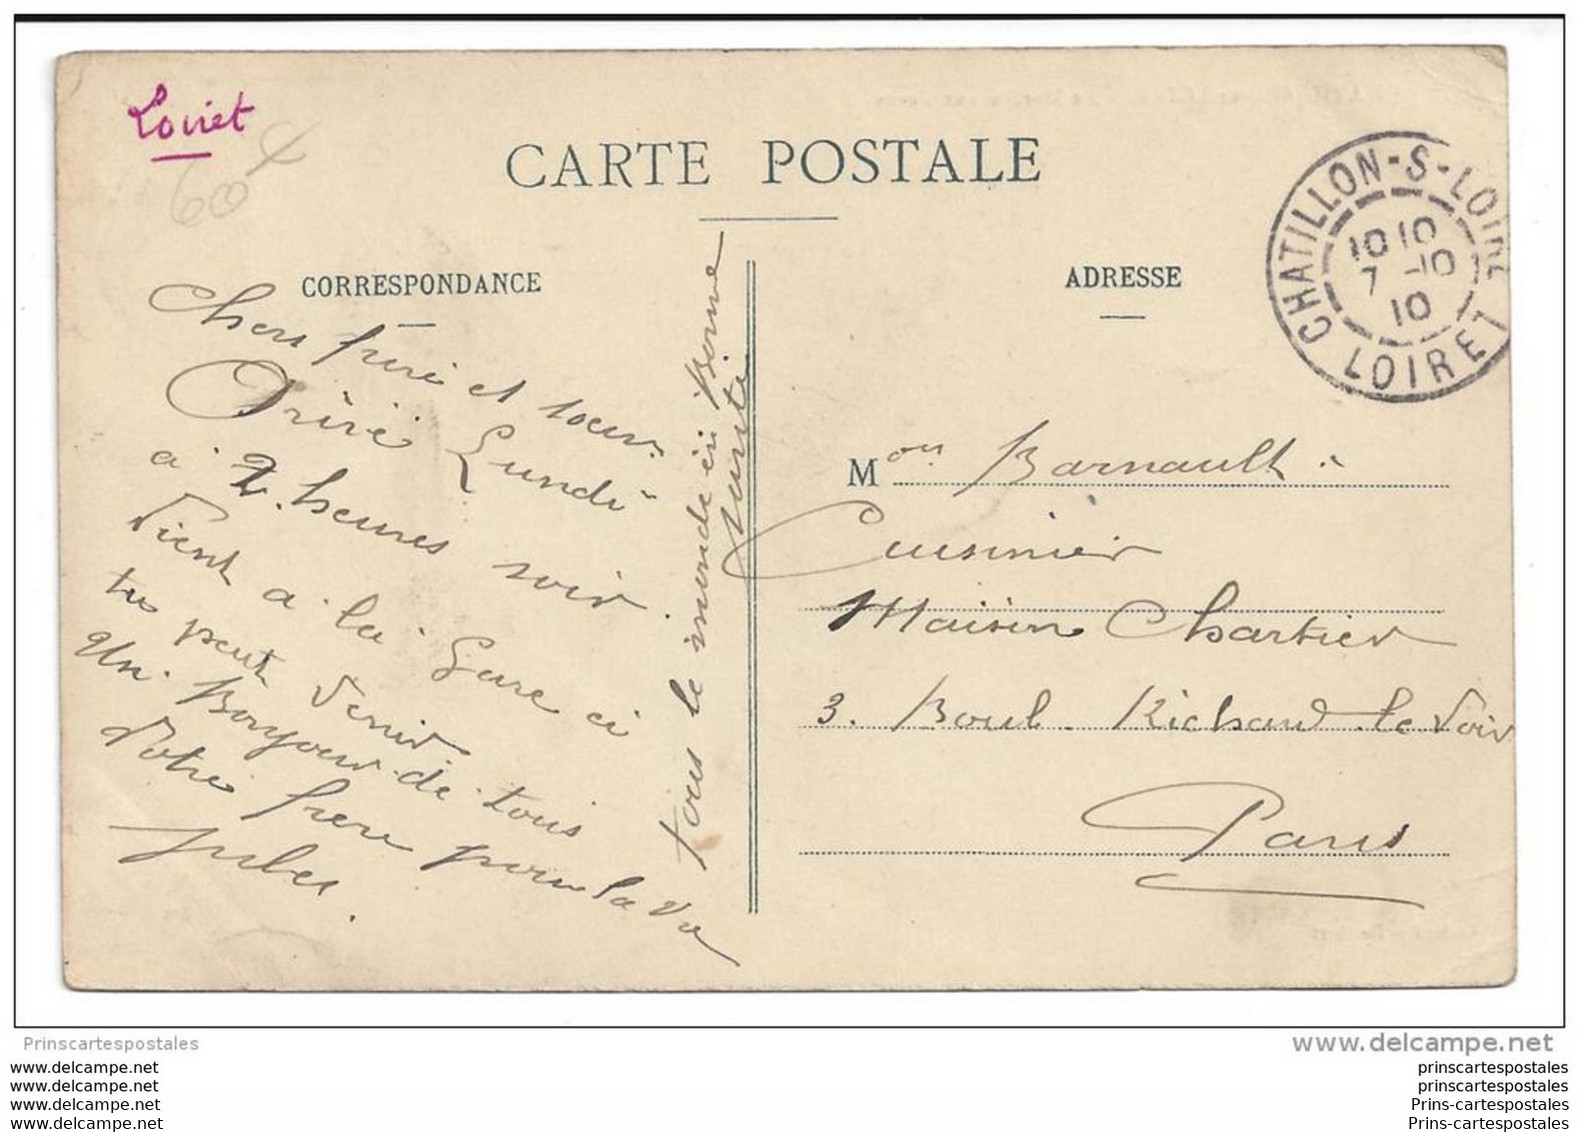 Loiret
60
CARTE POSTALE
CHATILLON-S-LOIRE
10 10
7 -10
10
LOIRET
CORRESPONDANCE
ADRESSE
Chers frère et soeur
Arivé Lundi
a 2 heures soir.
Vient a la Gare ci
tu peut venir
Un Bonjour de tous
Votre frère pour la vie
Jules.
tous le monde en Bonne
Santé
Mon Barnault
Cuisinier
Maison Chartier
3. Boul. Richard le Noir
Paris
Prinscartespostales
www.delcampe.net
www.delcampe.net
www.delcampe.net
www.delcampe.net
www.delcampe.net
prinscartespostales
prinscartespostales
Prins-cartespostales
Prins-cartespostales